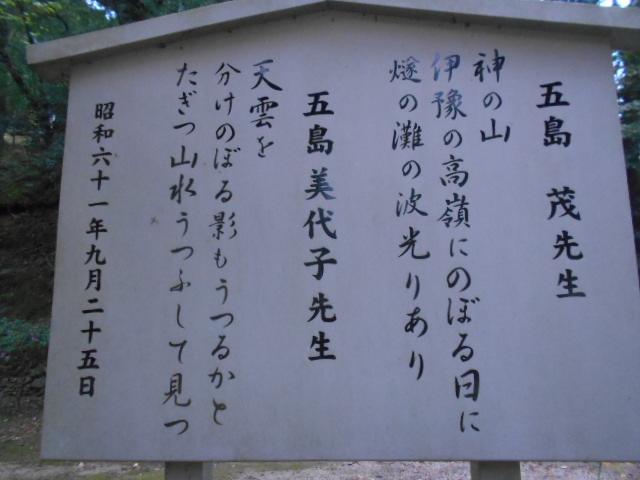 五島 茂先生
神の山
伊豫の高嶺にのぼる日に
燧の灘の波光りあり
五島美代子先生
天雲を
分けのぼる影もうつるかと
たぎつ山水うつふして見つ
昭和六十一年九月二十五日